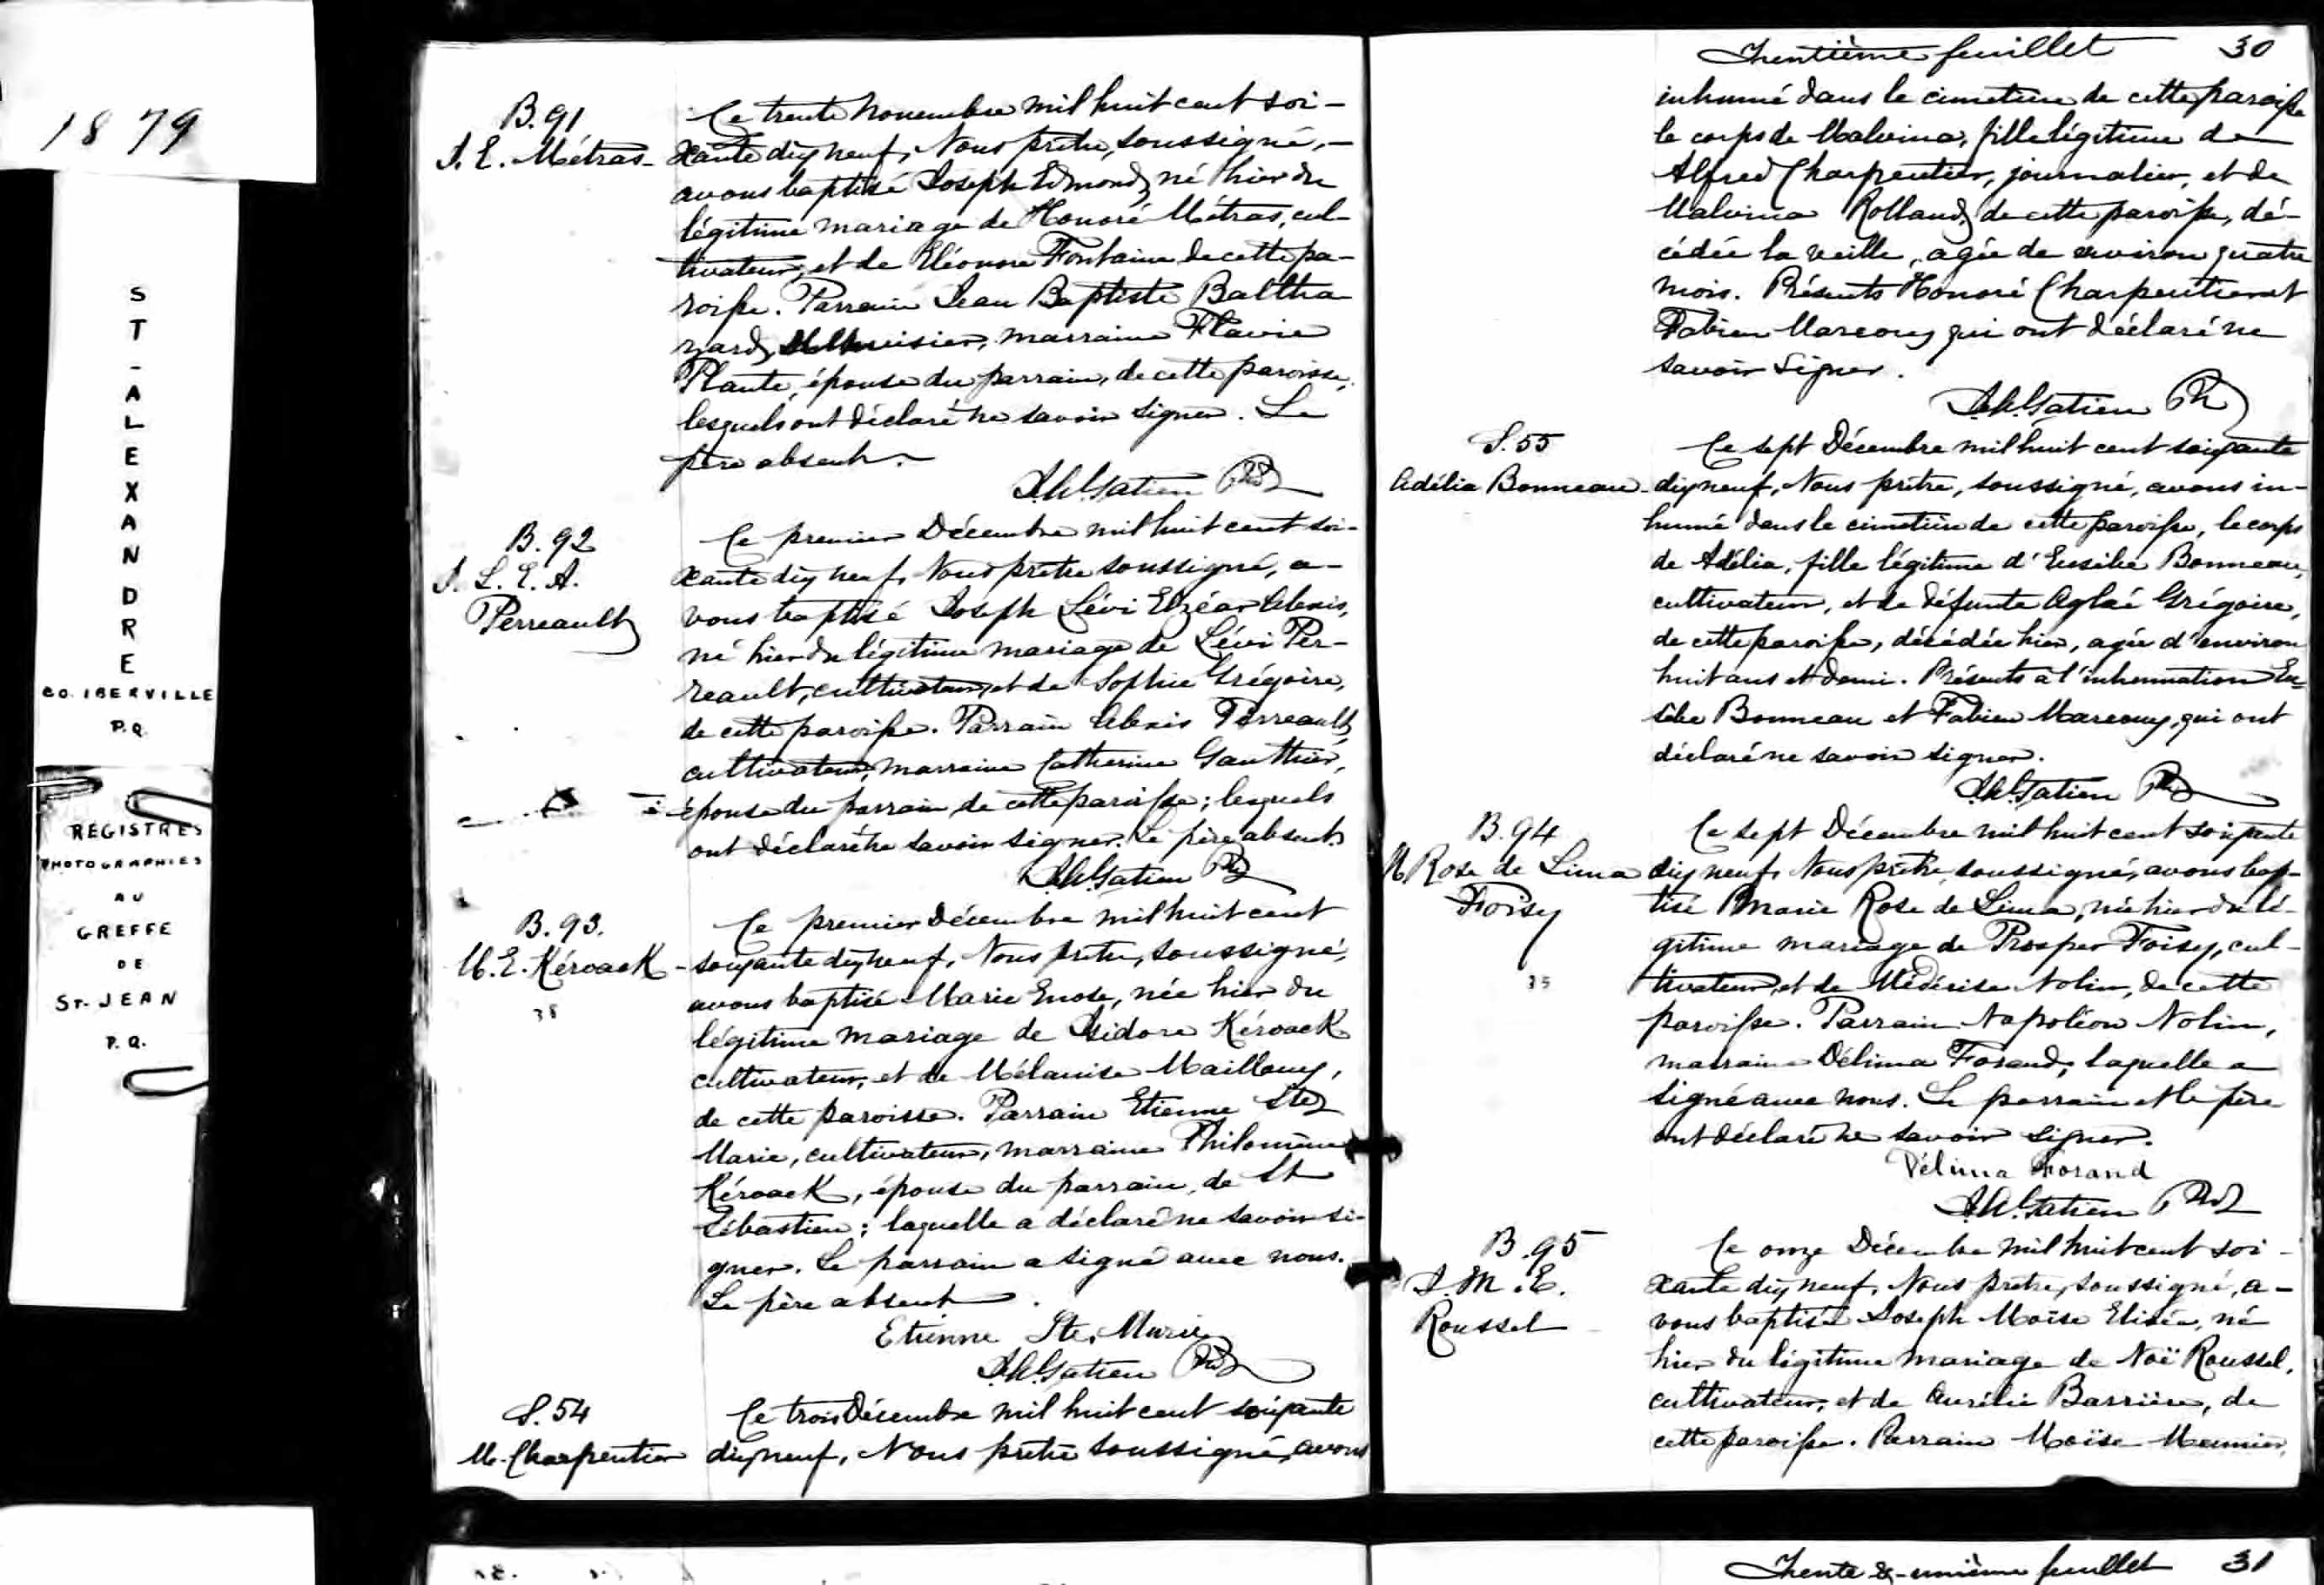 1879
S
T
-
A
L
E
X
A
N
D
R
E
CO. IBERVILLE
P.Q.
REGISTRES
PHOTOGRAPHIES
AU
GREFFE
DE
ST. JEAN
P.Q.
B.91
J. E. Métras
Ce trente Novembre mil huit cent soi-
xante dix neuf, Nous prêtre, soussigné,
avons baptisé Joseph Edmond, né hier du
légitime mariage de Honoré Métras, cul-
tivateur, et de Eléonore Fontaine de cette pa-
roisse. Parrain Jean Baptiste Baltha
zard, marraine Flavie
Plante, épouse du parrain, de cette paroisse,
lesquels ont déclaré ne savoir signer. Le
père absent.
Ptre
B.92
J. L. E. A.
Perreault
Ce premier Décembre mil huit cent soi-
xante dix neuf, Nous prêtre soussigné, a-
vons baptisé Joseph Lévi Elzéar Alexis,
né hier du légitime mariage de Lévi Per-
reault, cultivateur, et de Sophie Grégoire,
de cette paroisse. Parrain Alexis Perreault,
cultivateur, marraine Catherine Gauthier,
épouse du parrain de cette paroisse; lesquels
ont déclaré ne savoir signer. Le père absent.
Ptre
B.93.
M. E. Kéroack
38
Ce premier Décembre mil huit cent
soixante dix neuf, Nous prêtre, soussigné,
avons baptisé Marie Enose, née hier du
légitime mariage de Isidore Kéroack
cultivateur, et de Mélanise Mailloux,
de cette paroisse. Parrain Etienne Ste
Marie, cultivateur, marraine Philomène
Kéroack, épouse du parrain, de St
Sébastien; laquelle a déclaré ne savoir si-
gner. Le parrain a signé avec nous.
Le père absent.
Etienne Ste. Marie
Ptre
S.54
M. Charpentier
Ce trois Décembre mil huit cent soixante
dix neuf, Nous prêtre soussigné, avons
Trentième feuillet 30
inhumé dans le cimetière de cette paroisse
le corps de Malvina, fille légitime de
Alfred Charpentier, journalier, et de
Malvina Rolland, de cette paroisse, dé-
cédée la veille, agée de environ quatre
mois. Présents Honoré Charpentier et
Fabien Marcoux qui ont déclaré ne
savoir signer.
Ptre
S.55
Adélia Bonneau
Ce sept Décembre mil huit cent soixante
dix neuf, Nous prêtre, soussigné, avons in-
humé dans le cimetière de cette paroisse, le corps
de Adélia, fille légitime d'Eusèbe Bonneau,
cultivateur, et de défunte Aglaé Grégoire,
de cette paroisse, décédée hier, agée d'environ
huit ans et demi. Présents à l'inhumation Eu-
sèbe Bonneau et Fabien Marcoux, qui ont
déclaré ne savoir signer.
Ptre
B.94
M Rose de Lima
Foisy
35
Ce sept Décembre mil huit cent soixante
dix neuf, Nous prêtre, soussigné, avons bap-
tisé Marie Rose de Lima, née hier du lé-
gitime mariage de Prosper Foisy, cul-
tivateur, et de Médérise Nolin, de cette
paroisse. Parrain Napoléon Nolin,
marraine Délima Forand, laquelle a
signé avec nous. Le parrain et le père
ont déclaré ne savoir signer.
Délima Forand
Ptre
B.95
J. M. E.
Roussel
Ce onze Décembre mil huit cent soi-
xante dix neuf, Nous prêtre, soussigné, a-
vons baptisé Joseph Moïse Elisée, né
hier du légitime mariage de Noë Roussel,
cultivateur, et de Aurélie Barrière, de
cette paroisse. Parrain Moïse Meunier,
Trente & unième feuillet 31